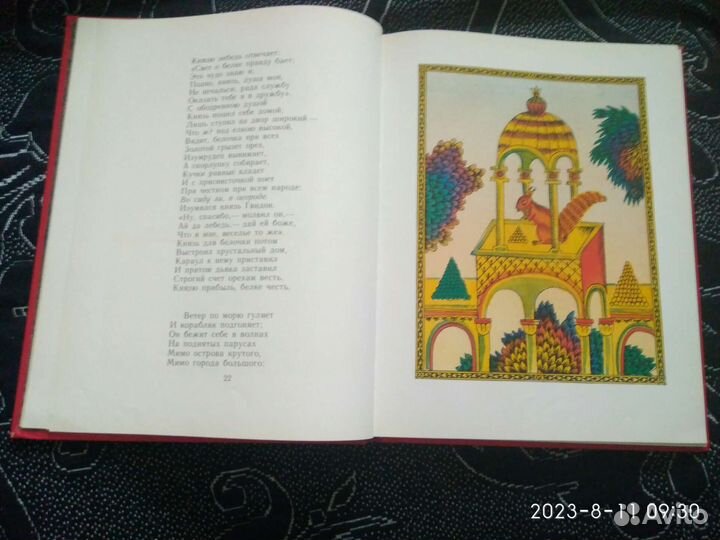 Князю лебедь отвечает:
«Свет о белке правду бает;
Это чудо знаю я;
Полно, князь, душа моя,
Не печалься; рада службу
Оказать тебе я в дружбу».
С ободренною душой
Князь пошел себе домой;
Лишь ступил на двор широкий —
Что ж? под елкою высокой,
Видит, белочка при всех
Золотой грызет орех,
Изумрудец вынимает,
А скорлупку собирает,
Кучки равные кладет
И с присвисточкой поет
При честном при всем народе:
Во саду ли, в огороде.
Изумился князь Гвидон.
«Ну, спасибо,— молвил он,—
Ай да лебедь,— дай ей боже,
Что и мне, веселье то же».
Князь для белочки потом
Выстроил хрустальный дом,
Караул к нему приставил
И притом дьяка заставил
Строгий счет орехам весть.
Князю прибыль, белке честь.
Ветер по морю гуляет
И кораблик подгоняет;
Он бежит себе в волнах
На поднятых парусах
Мимо острова крутого,
Мимо города большого:
22
2023-8-11 09:30
Avito